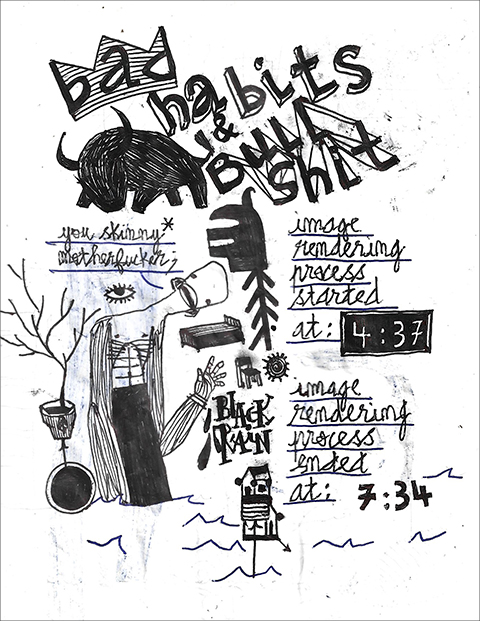 bad
habits
&
Bull
shit
you skinny*
motherfucker,
image
rendering
process
started
at: 4:37
BLACK
RAIN
image
rendering
process
ended
at: 7:34